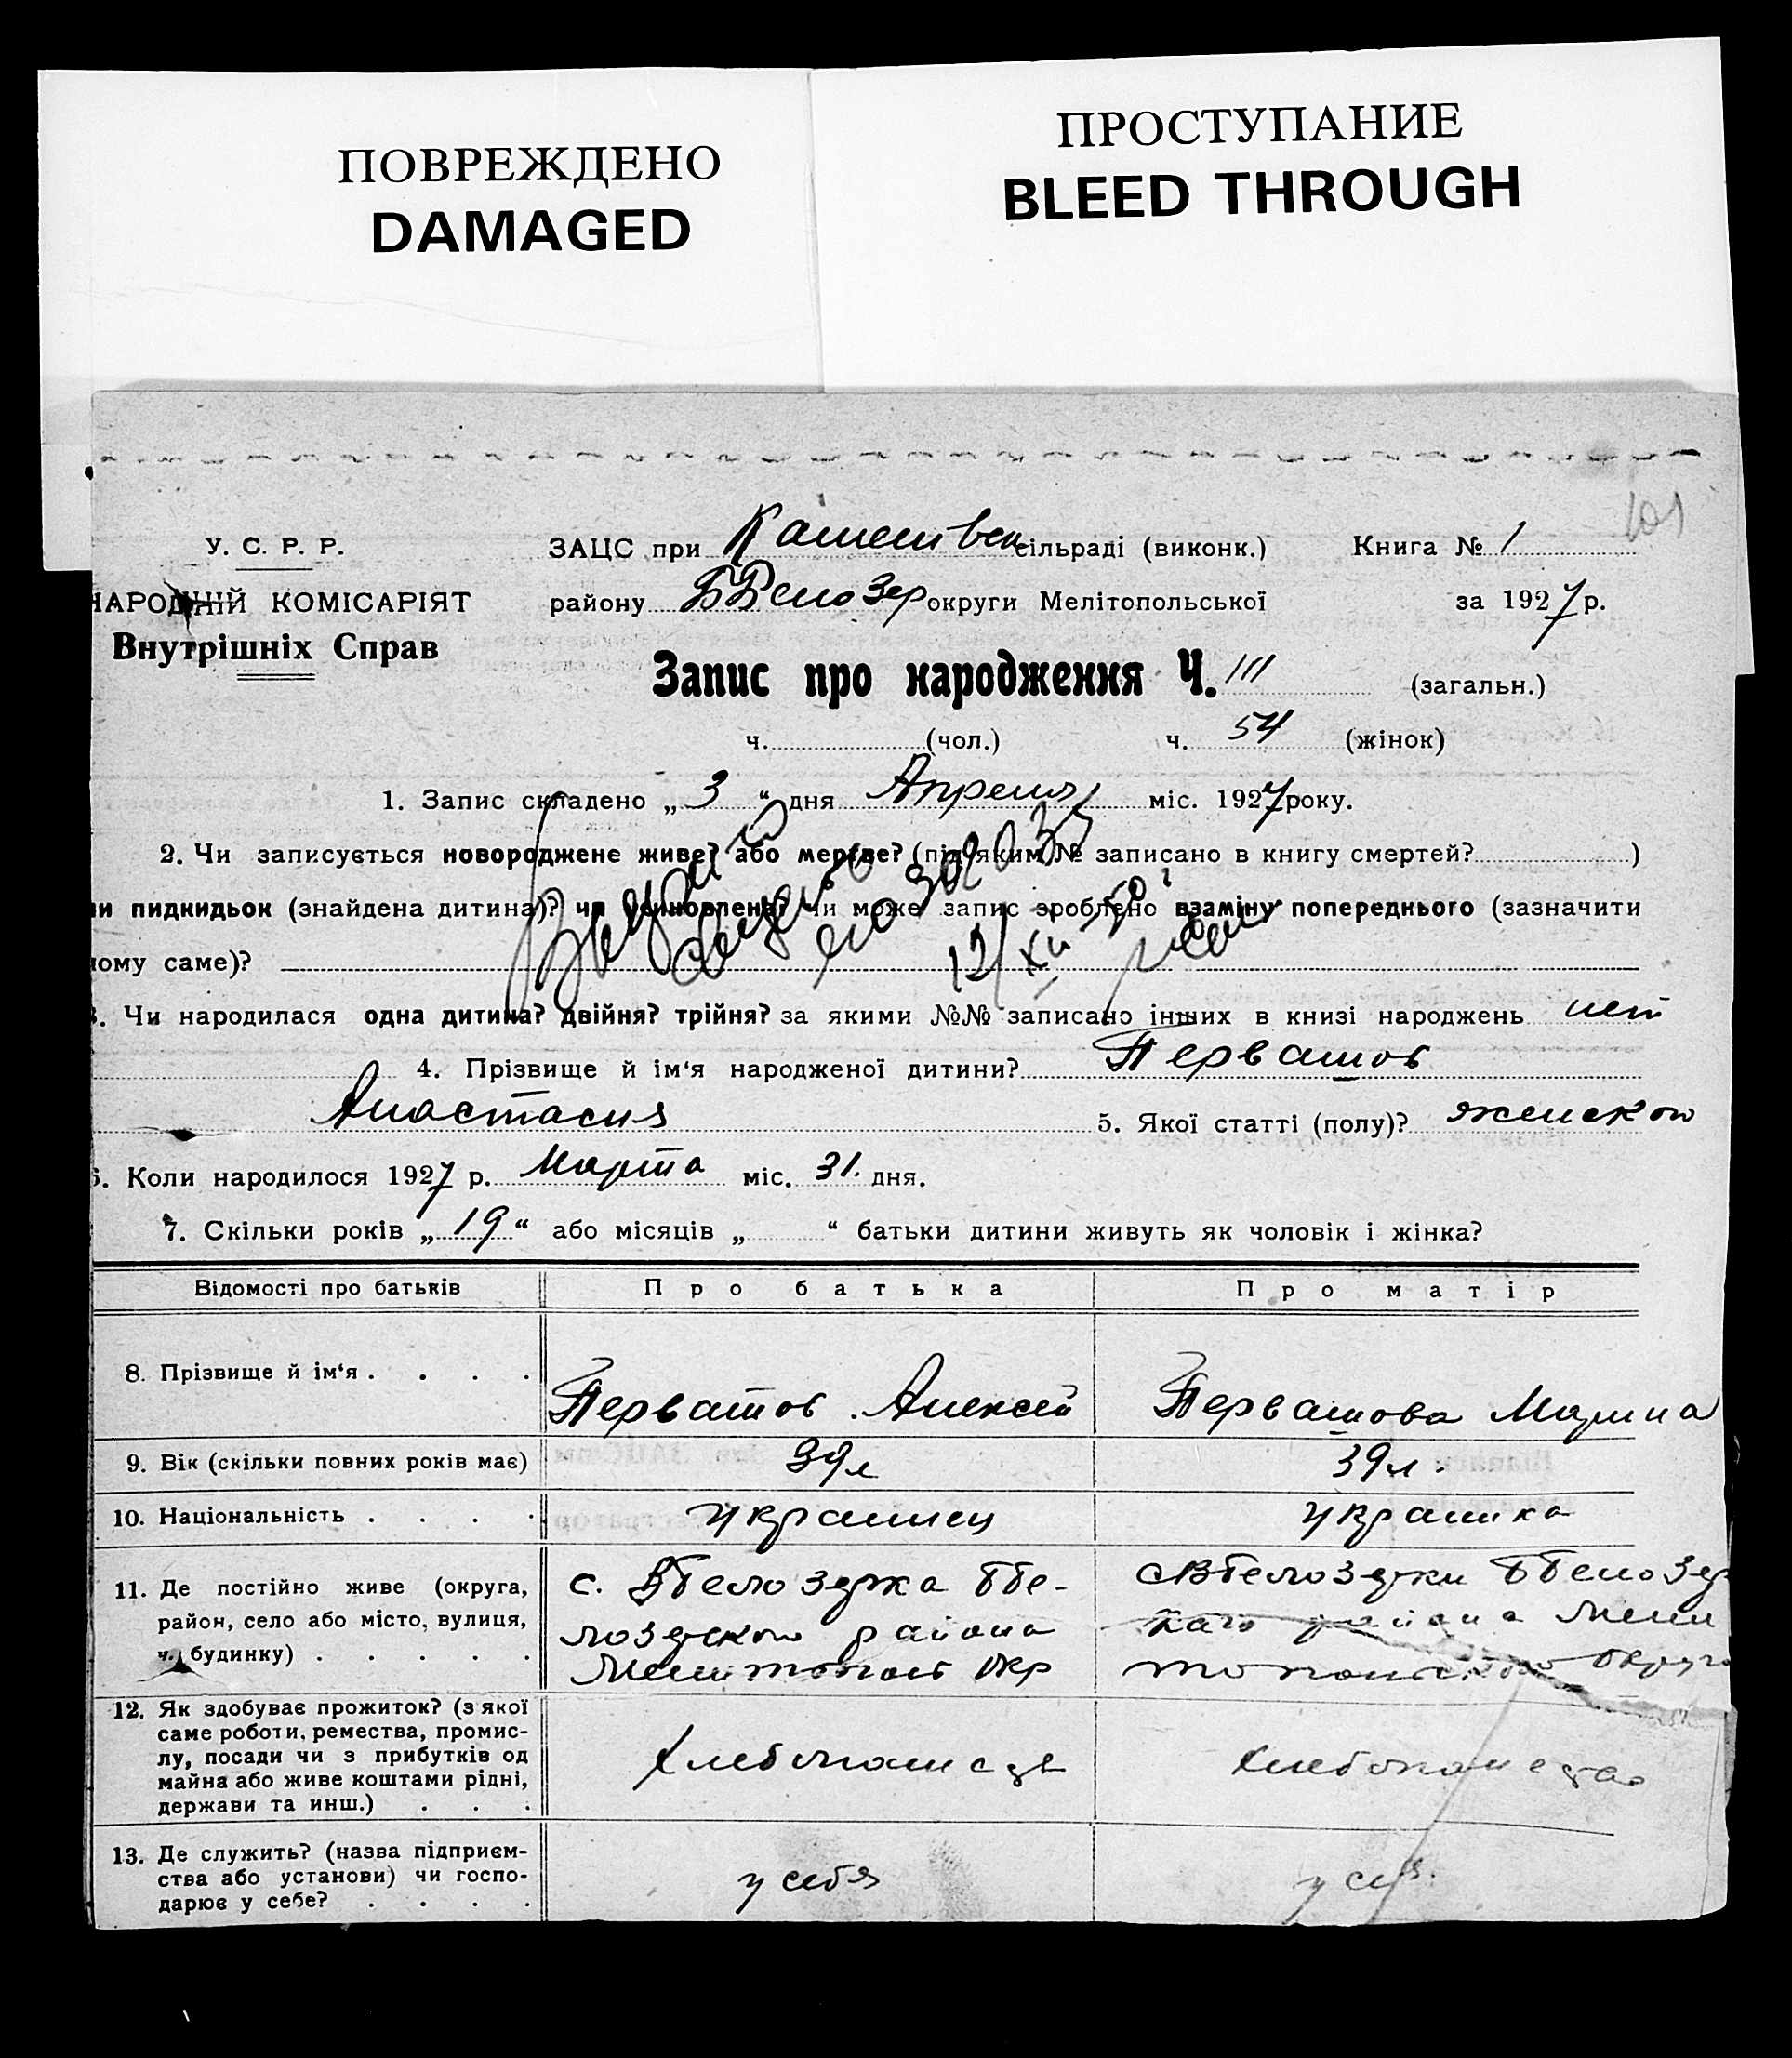 ПОВРЕЖДЕНО
DAMAGED
ПРОСТУПАНИЕ
BLEED THROUGH
101
У. С. Р. Р.
НАРОДНІЙ КОМІСАРІЯТ
Внутрішніх Справ
ЗАЦС при сільраді (виконк.) Книга № 1
району ББелозер округи Мелітопольської за 1927 р.
Запис про народження Ч. 111 (загальн.)
ч. (чол.) ч. 54 (жінок)
1. Запис складено „ 3 “ дня Апреля міс. 1927 року.
2. Чи записується новороджене живе? або мертве? (під яким № записано в книгу смертей? )
чи пидкидьок (знайдена дитина)? чи усиновлена? Чи може запис зроблено взаміну попереднього (зазначити
ному саме)?
3. Чи народилася одна дитина? двійня? трійня? за якими №№ записано інших в книзі народжень нет
4. Прізвище й ім‘я народженої дитини? Перватов
Анастасия 5. Якої статті (полу)? женского
6. Коли народилося 1927 р. Марта міс. 31. дня.
7. Скільки років „ 19 “ або місяців „ “ батьки дитини живуть як чоловік і жінка?
Відомості про батьків Про батька Про матір
8. Прізвище й ім‘я . . . . Перватов Алексей Перватова Марина
9. Вік (скільки повних років має) 39 л 39 л.
10. Національність . . . . украинец украинка
11. Де постійно живе (округа, с. Ббелозерка Ббе-
район, село або місто, вулиця, лозерского района
ч. будинку) . . . . . Мелитополь Окр
12. Як здобуває прожиток? (з якої
саме роботи, ремества, промис-
лу, посади чи з прибутків од
майна або живе коштами рідні,
держави та инш.) . . .
13. Де служить? (назва підприєм-
ства або установи) чи госпо- у себя у себя.
дарює у себе? . . . .